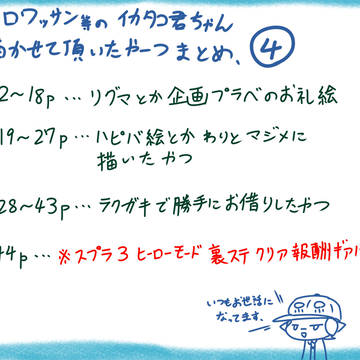 ロワッサン等の イカタコ君ちゃん
かせて頂いたやーつ まとめ、④
2~18p … リグマとか企画プラベのお礼絵
19~27p … ハピバ絵とか わりとマジメに
描いた やつ
28~43p … ラクガキで勝手にお借りしたやつ
44p … ※スプラ3 ヒーローモード 裏ステ クリア 報酬ギア
いつもお世話に
なってます、